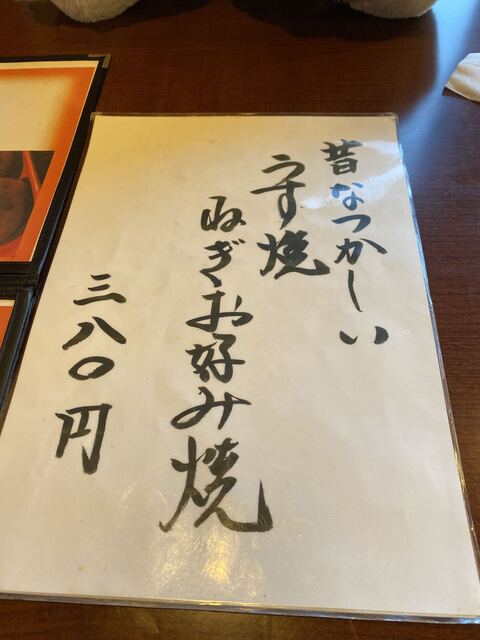 昔なつかしい
うす焼
ねぎお好み焼
三八〇円